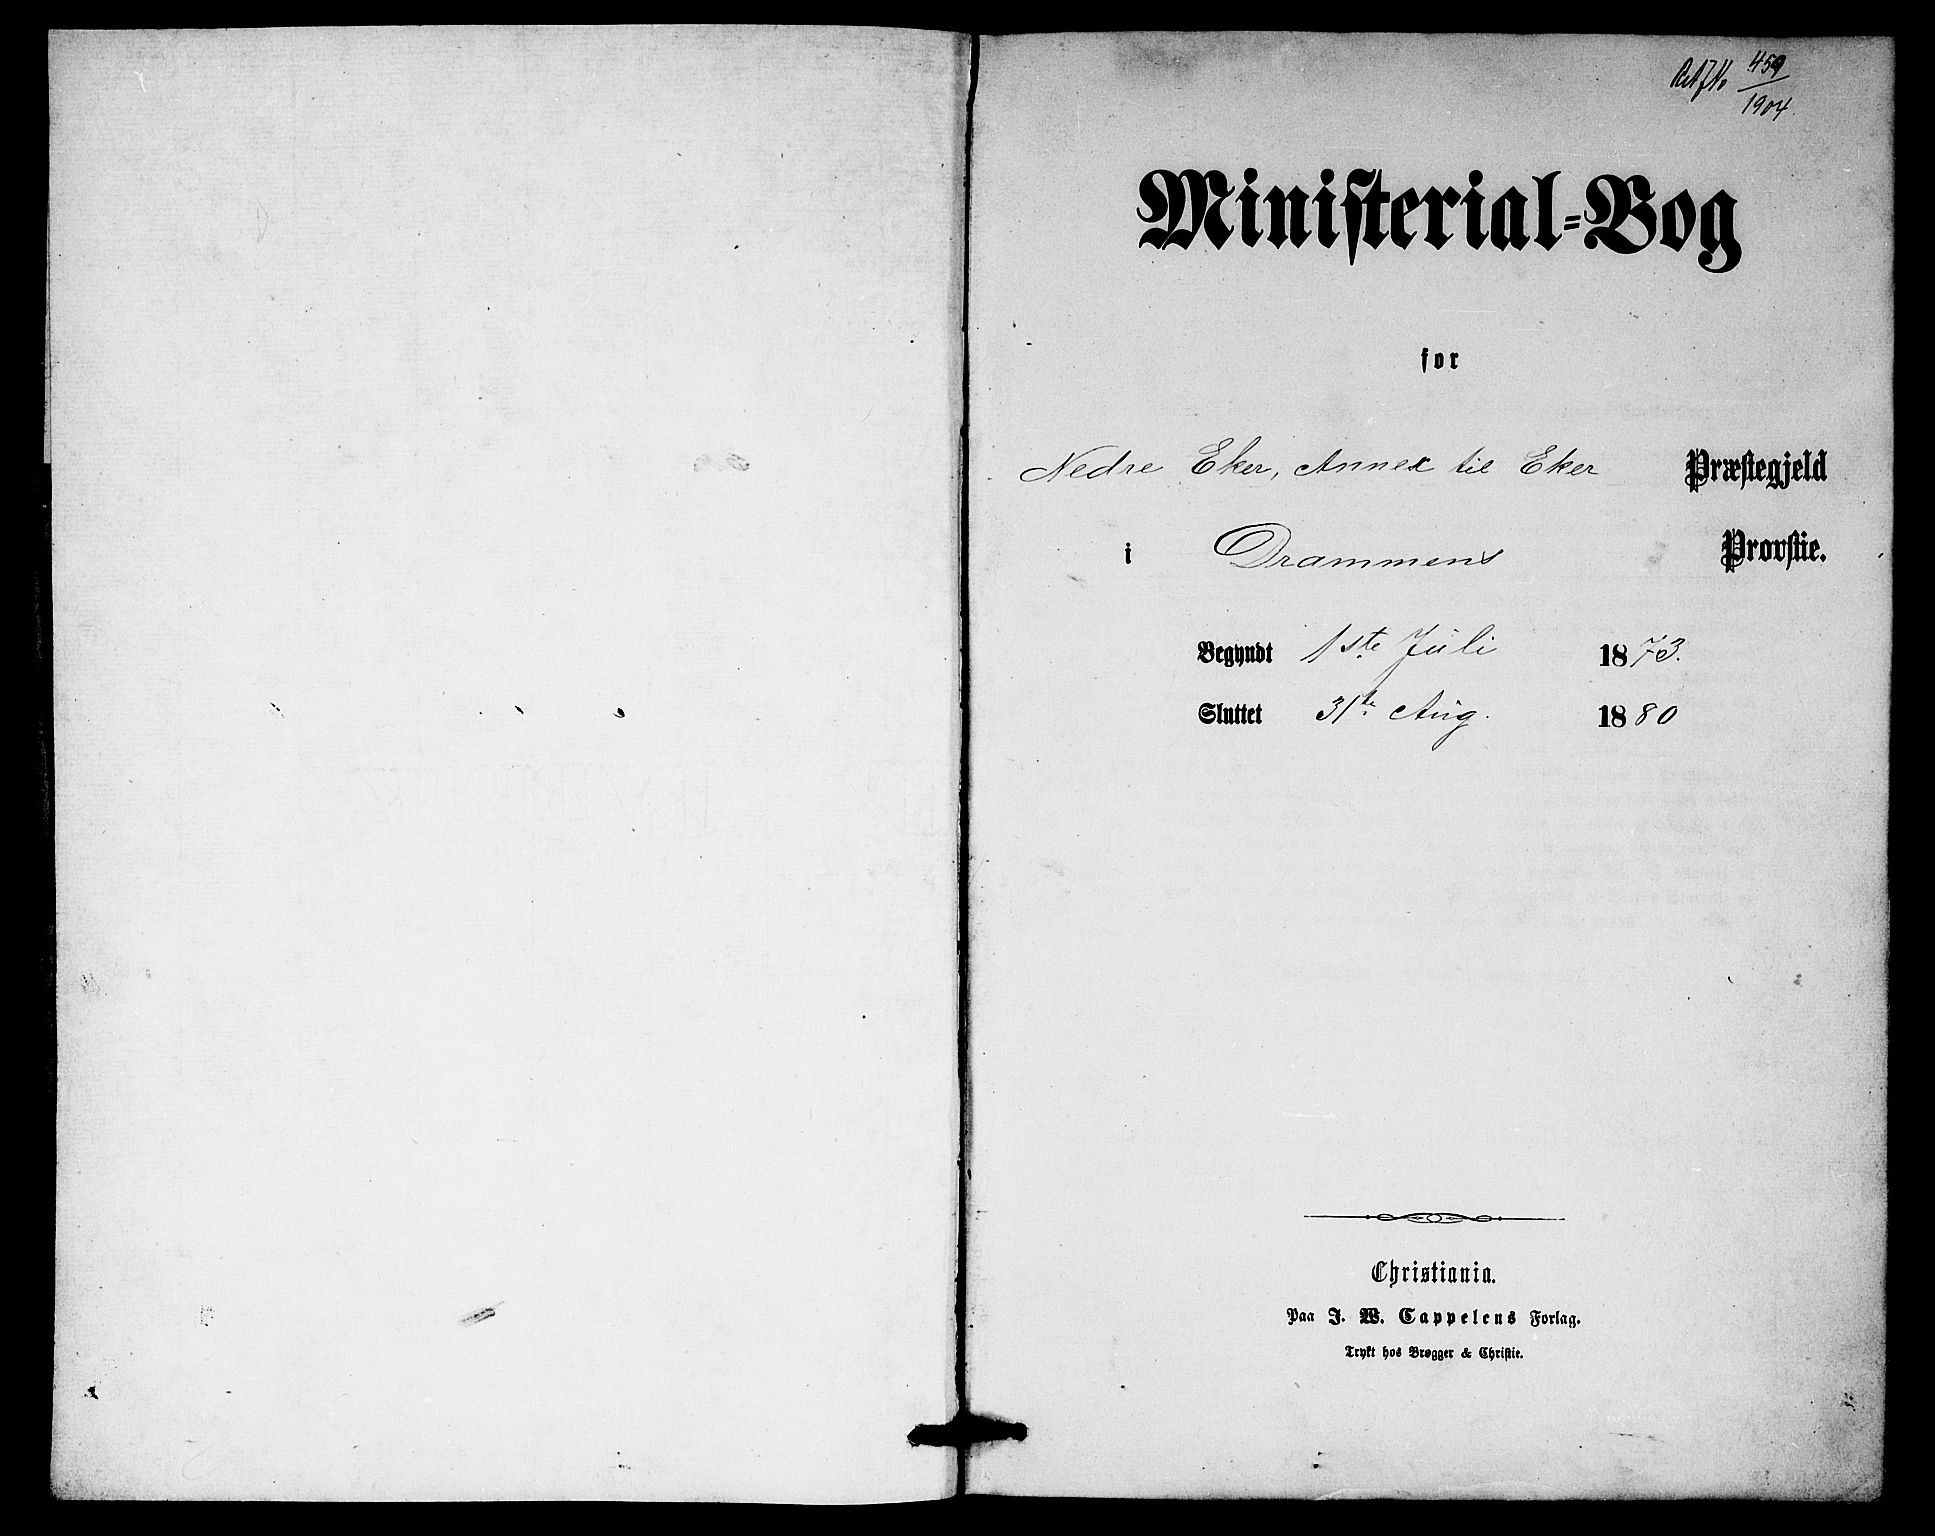 459
1904.
Ministerial-Bog
for
Nedre Eker, Annex til Eker Præstegjeld
i Drammens Provstie.
Begyndt 1ste Juli 1873.
Sluttet 31te Aug. 1880
Christiania.
Paa J. W. Cappelens Forlag.
Trykt hos Brøgger & Christie.